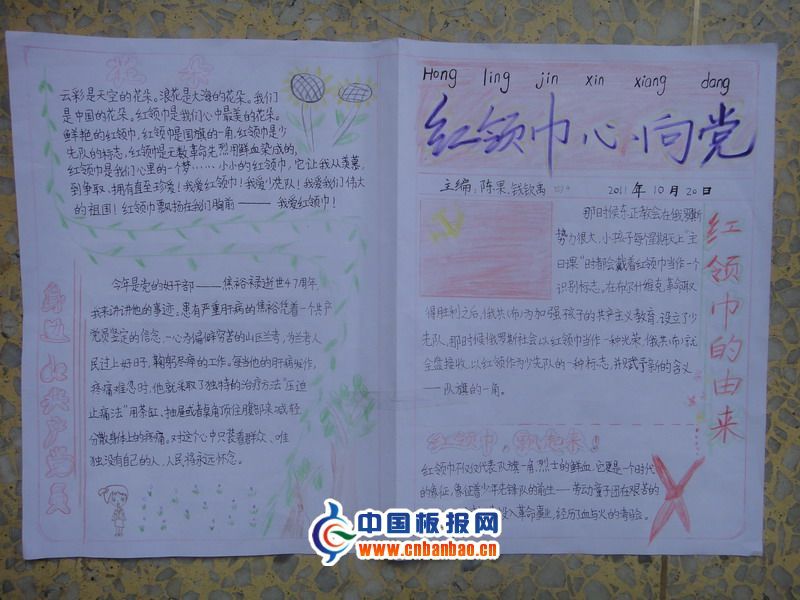 花朵
云彩是天空的花朵。浪花是大海的花朵。我们
是中国的花朵。红领巾是我们心中最美的花朵。
鲜艳的红领巾,红领巾是国旗的一角,红领巾是少
先队的标志,红领巾是无数革命先烈用鲜血染成的,
红领巾是我们心里的一个梦……小小的红领巾,它让我从羡慕,
到争取、拥有直至珍爱!我爱红领巾!我爱少先队!我爱我们伟大
的祖国!红领巾飘扬在我们胸前——我爱红领巾!
身边的共产党员
今年是党的好干部——焦裕禄逝世47周年,
我来讲讲他的事迹。患有严重肝病的焦裕禄凭着一个共产
党员坚定的信念,一心为偏僻穷苦的山区兰考,为兰考人
民过上好日子,鞠躬尽瘁的工作。每当他的肝病发作,
疼痛难忍时,他就采取了独特的治疗方法“压迫
止痛法”用茶缸、抽屉或者桌角顶住腹部来减轻
分散身体上的疼痛。对这个心中只装着群众、唯
独没有自己的人,人民将永远怀念。
Hong ling jin xin xiang dang
红领巾心向党
主编:陈果、钱钦禹
2011年10月20日
红领巾的由来
那时候东正教会在俄罗斯
势力很大,小孩子每个星期天上“主
日课”时都会戴着红领巾当作一个
识别标志。在布尔什维克革命取
得胜利之后,俄共(布)为加强孩子的共产主义教育,设立了少
先队,那时候俄罗斯社会以红领巾当作一种光荣,俄共(布)就
全盘接收,以红领作为少先队的一种标志,并赋予新的含义
——队旗的一角。
红领巾,飘起来!
红领巾不仅仅代表队旗一角,烈士的鲜血,它更是一个时代
的象征,象征着少年先锋队的前生——劳动童子团在艰苦的
入革命事业,经历了血与火的考验。
中国板报网
www.cnbanbao.cn